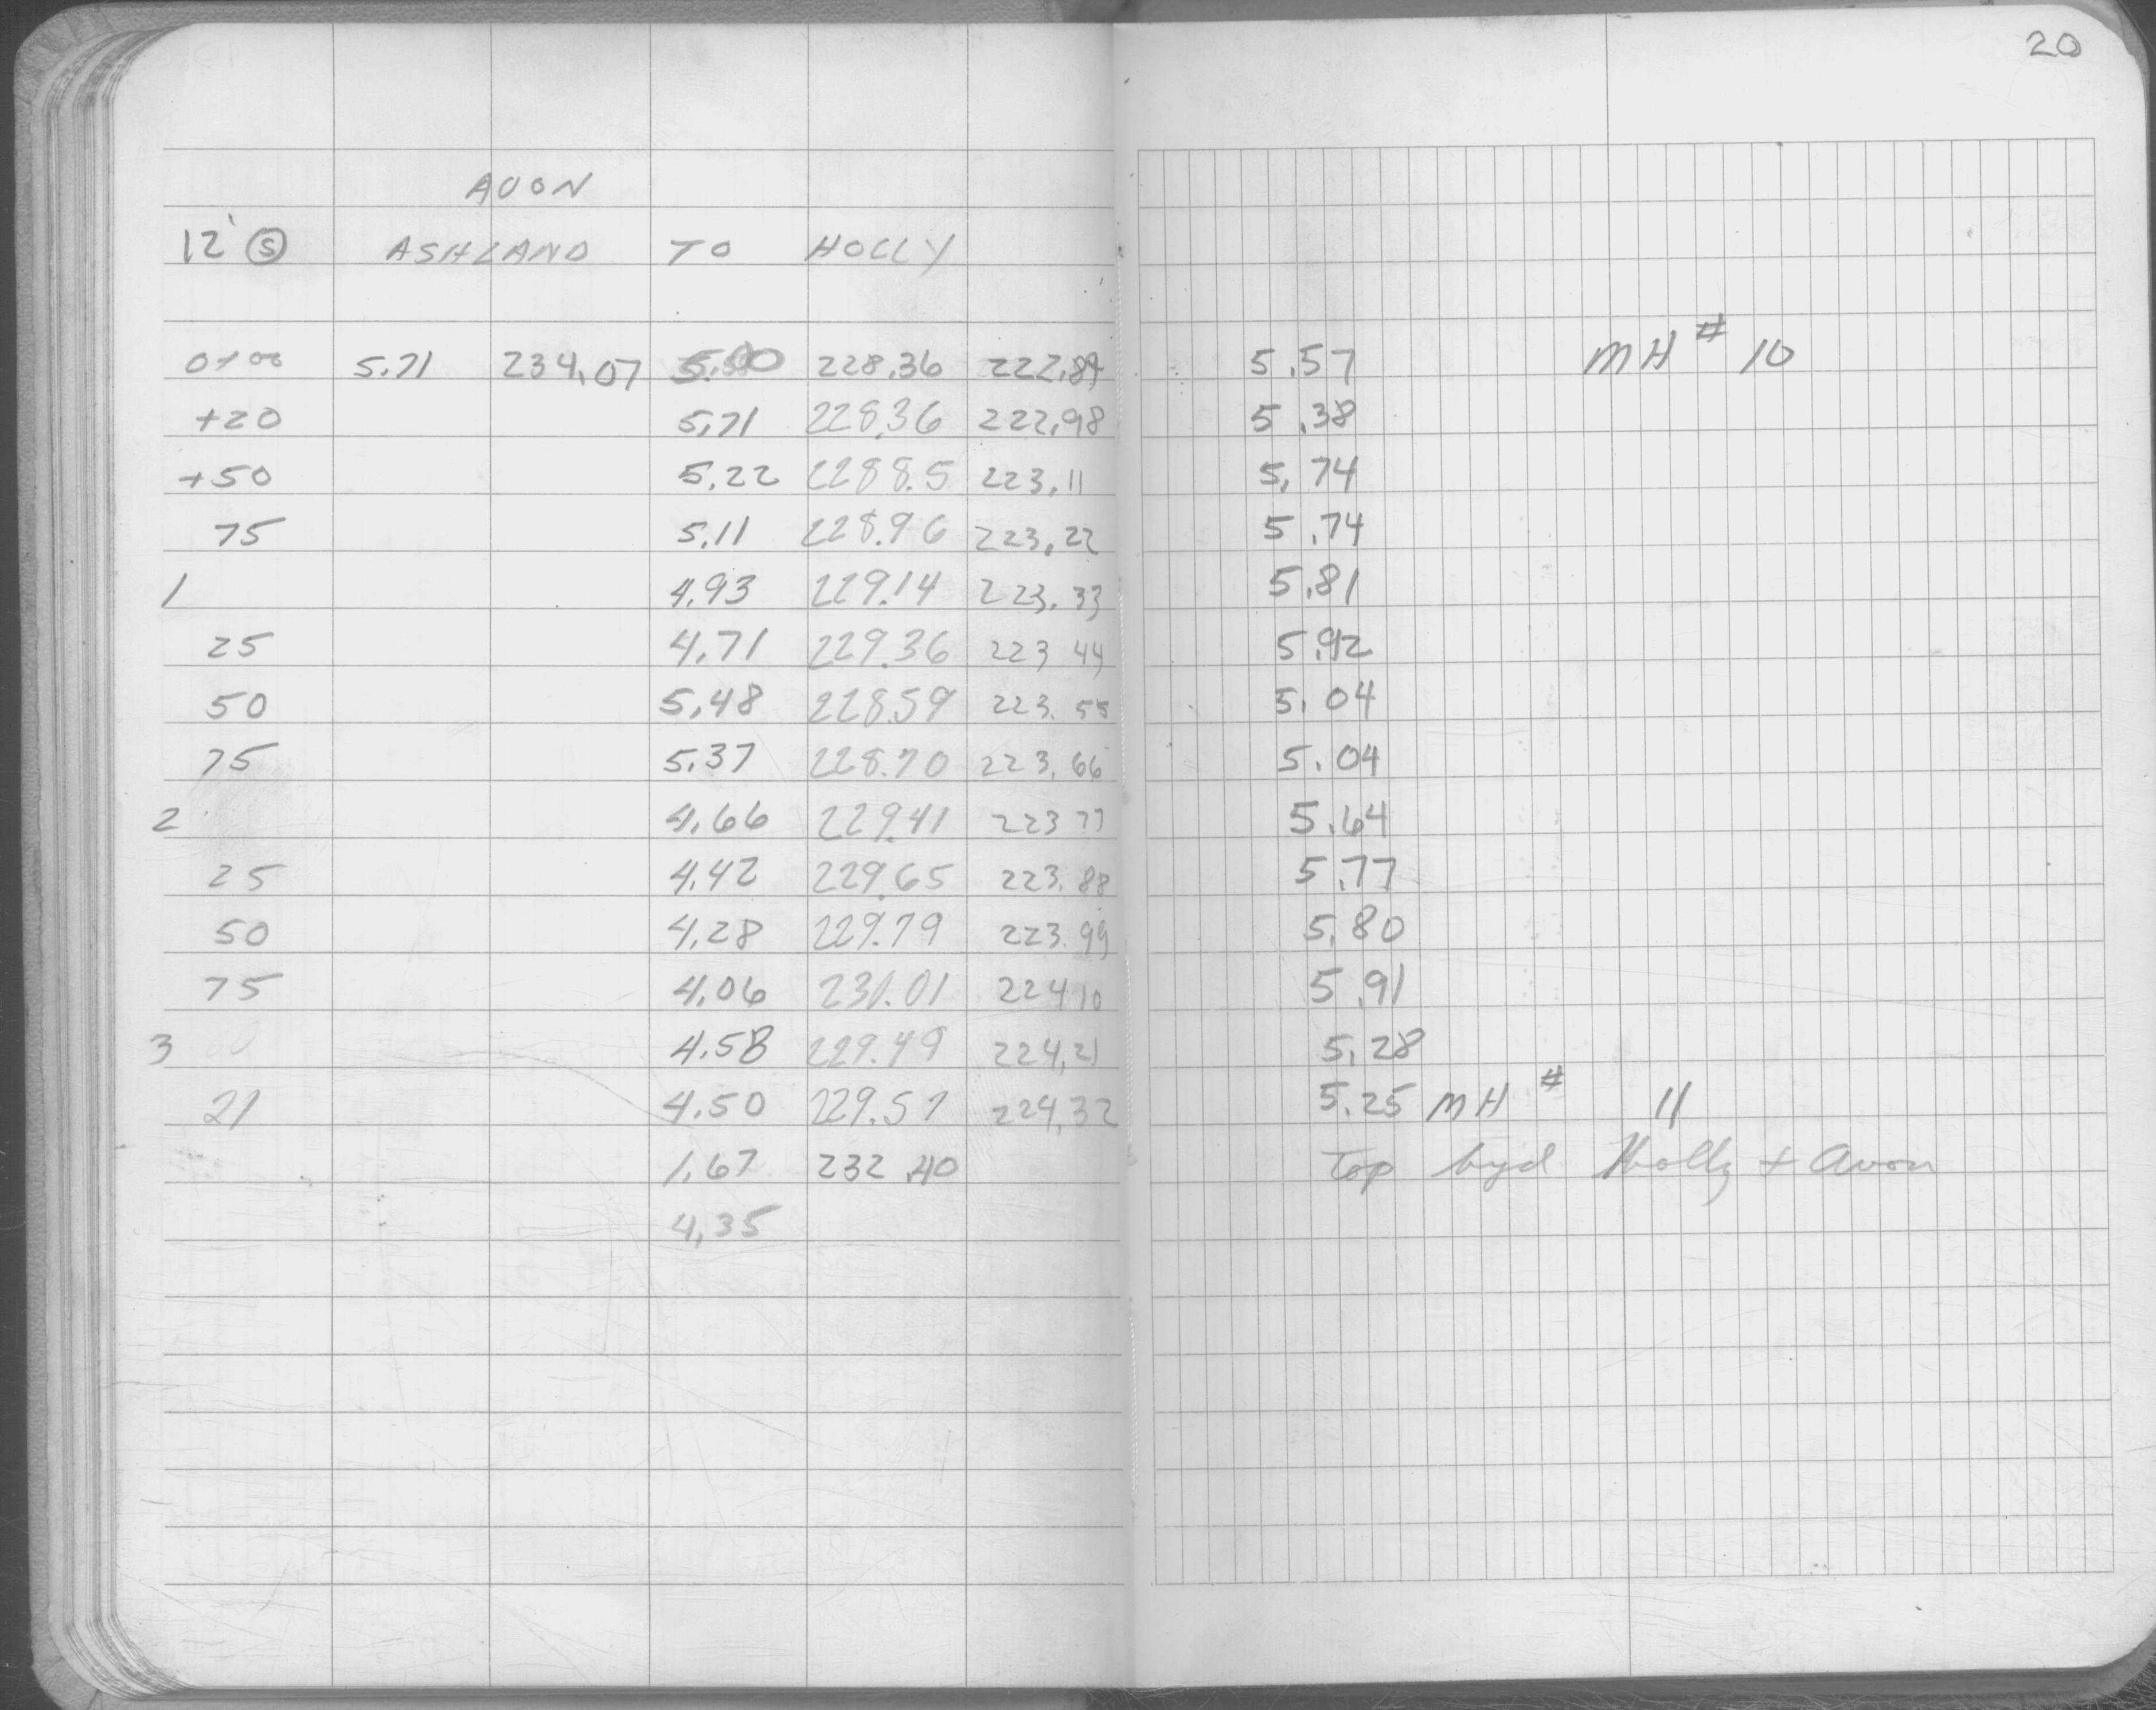 20
AVON
12" Ⓢ ASHLAND TO HOLLY
0+00 5.71 234.07 228.36 222.89 5.57 MH # 10
+20 5.71 228.36 222.98 5.38
+50 5.22 2288.5 223.11 5.74
75 5.11 228.96 223.22 5.74
1 4.93 229.14 223.33 5.81
25 4.71 229.36 223 44 5.92
50 5.48 228.59 223.55 5.04
75 5.37 228.70 223.66 5.04
2 4.66 229.41 223 77 5.64
25 4.42 229.65 223.88 5.77
50 4.28 229.79 223.99 5.80
75 4.06 230.01 224 10 5.91
3 4.58 229.49 224.21 5.28
21 4.50 229.57 224.32 5.25 MH # 11
1.67 232.40 Top hyd Holly + Avon
4.35